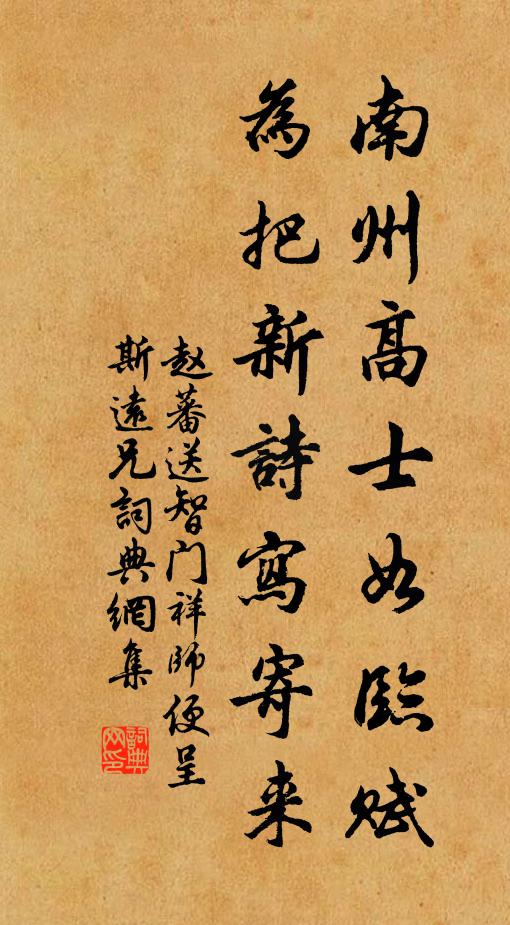 南州高士如臨賦
為把新詩寫寄来
赵蕃送智门祥師便呈
斯遠兄詞典網集
詞典网印